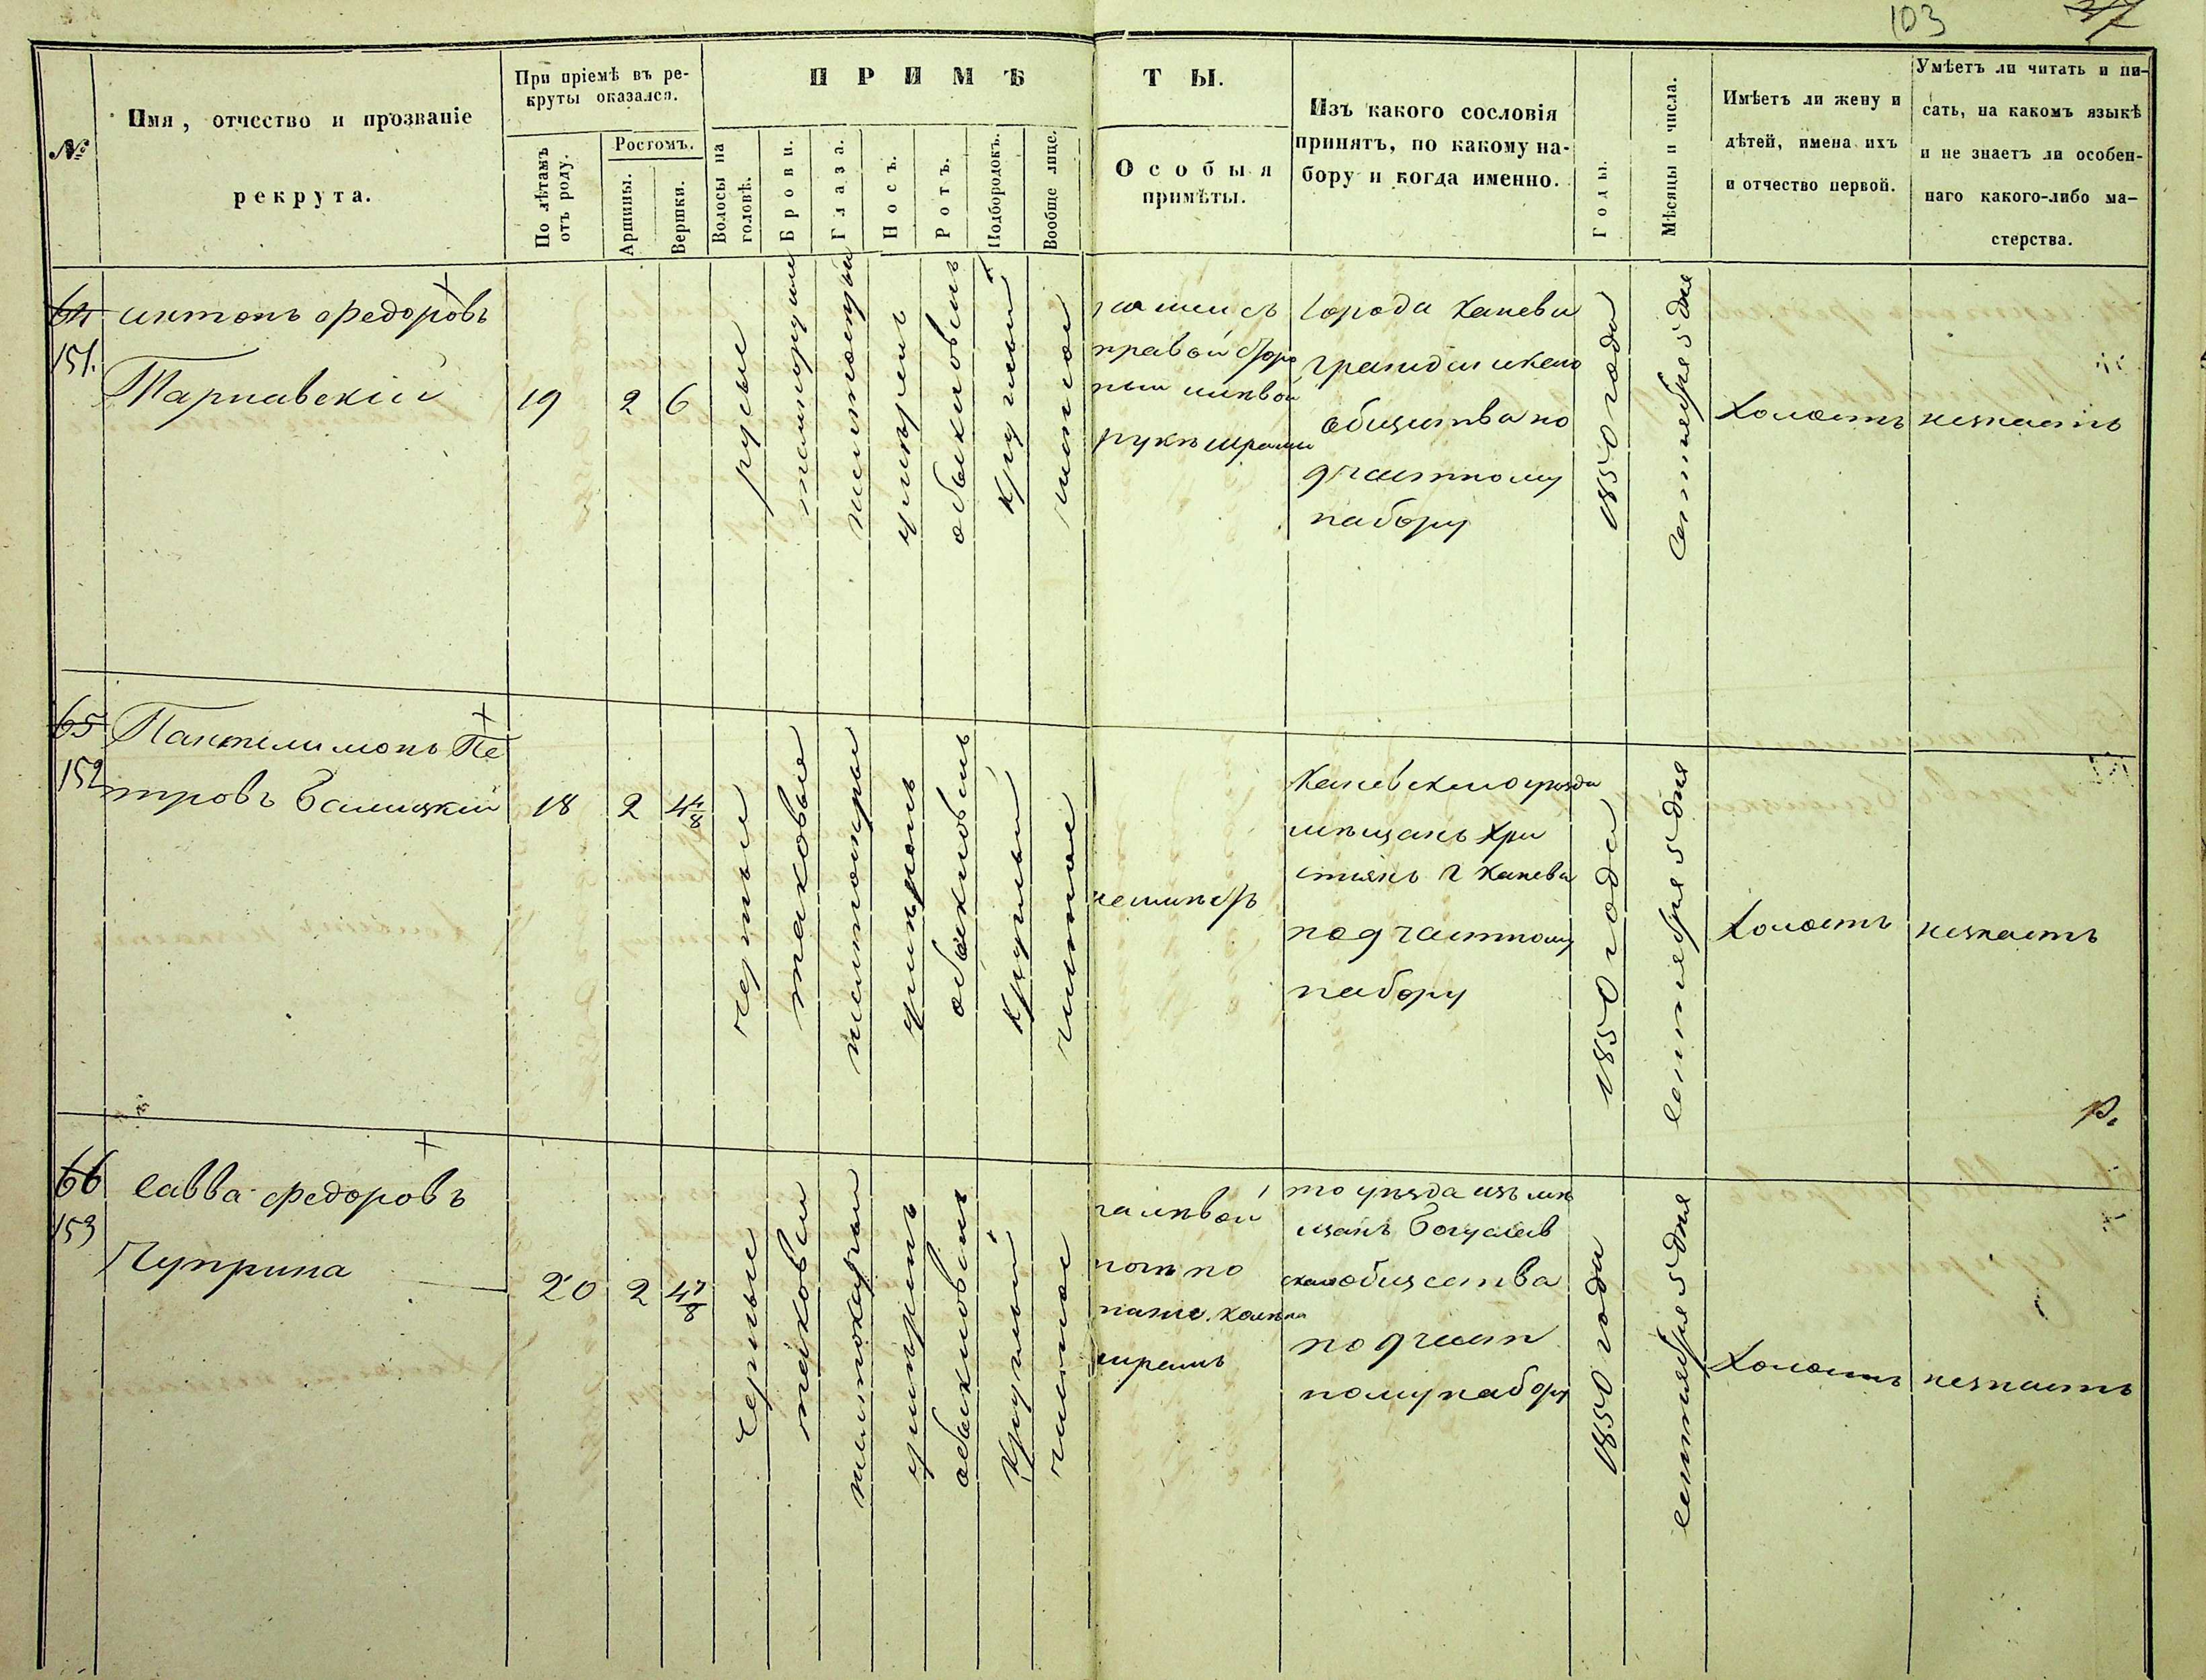 103 37
№
Имя, отчество и прозваніе
рекрута.
При пріемѣ въ ре-
круты оказался.
По лѣтамъ
отъ роду.
Ростомъ.
Аршины.
Вершки.
ПРИМѢ
ТЫ.
Волосы на
головѣ.
Брови.
Глаза.
Носъ.
Ротъ.
Подбородокъ.
Вообще лице.
Особыя
примѣты.
Изъ какого сословія
принятъ, по какому на-
бору и когда именно.
Годы.
Мѣсяцы и числа.
Имѣетъ ли жену и
дѣтей, имена ихъ
и отчество первой.
Умѣетъ ли читать и пи-
сать, на какомъ языкѣ
и не знаетъ ли особен-
наго какого-либо ма-
стерства.
64
151.
антонъ Федоровъ
Тарнавскій
19
2
6
русые
умѣренъ
обыкновенъ
круглый
чистое
правой сторо
руке шрамы
города Канева
гражданскаго
общества по
частному
набору
1850 года
сентебря 5 дня
холостъ
незнаетъ
65
152
Пантелимонъ Пе
тровъ Балицкій
18
2
4 4/8
черные
таковые
умѣренъ
обыкновенъ
круглый
чистое
неимѣетъ
Каневскаго уезда
мѣщанъ хри
стіянъ г Канева
под частному
набору
1850 года
сентебря 5 дня
холостъ
незнаетъ
р.
66
153
Савва Федоровъ
Чуприна
20
2
4 7/8
черные
таковые
умѣренъ
обыкновенъ
круглый
чистое
на лѣвой
ноге по
ниже колена
шрамъ
то уѣзда изъ мѣ
щанъ Богуслав
скаго общества
по д част
ному набору
1850 года
сентября 5 дня
холостъ
незнаетъ